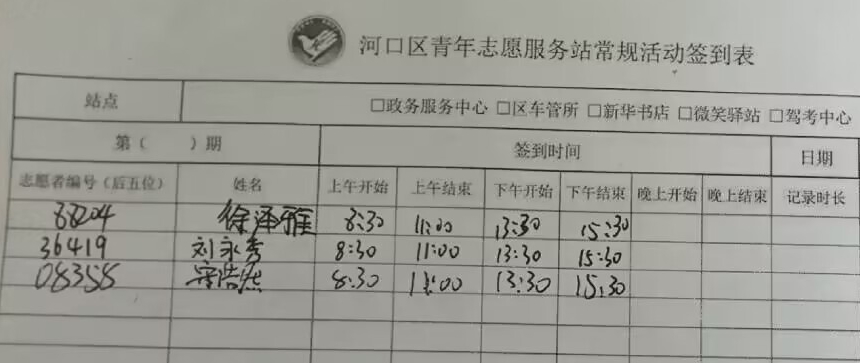 河口区青年志愿服务站常规活动签到表
站点 □政务服务中心 □区车管所 □新华书店 □微笑驿站 □驾考中心
第（ ）期 签到时间 日期
志愿者编号（后五位） 姓名 上午开始 上午结束 下午开始 下午结束 晚上开始 晚上结束 记录时长
68204 徐泽雅 8:30 11:00 13:30 15:30
36419 刘永秀 8:30 11:00 13:30 15:30
08358 宋浩然 8:30 11:00 13:30 15:30